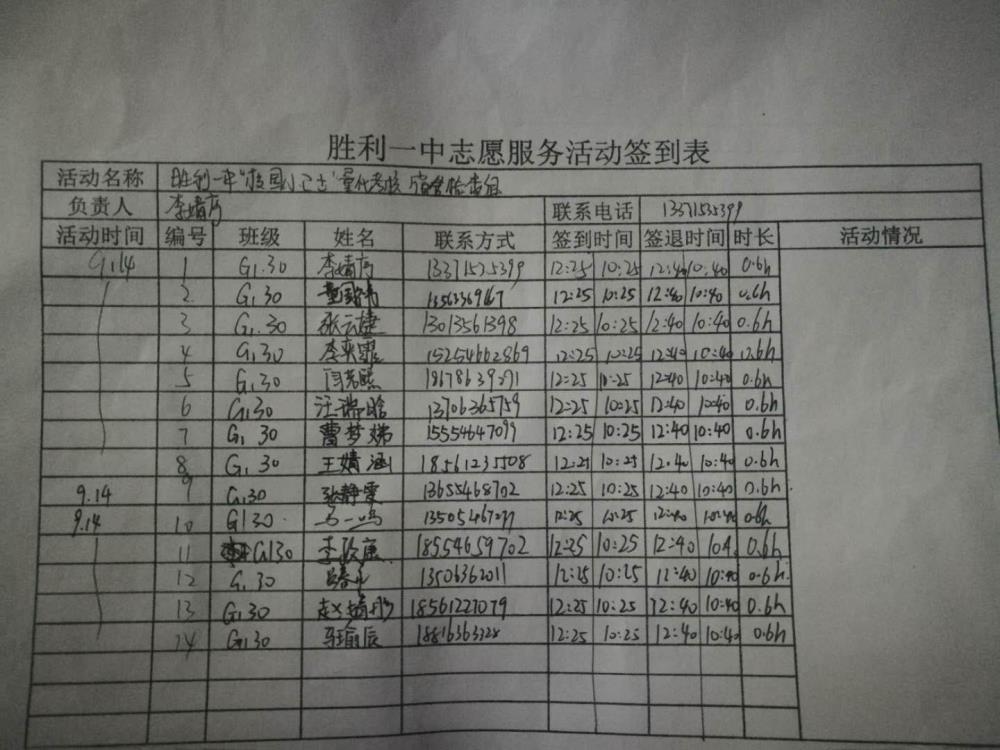 胜利一中志愿服务活动签到表
活动名称 胜利一中"校园小卫士"量化考核 宿舍检查组
负责人 李婧 联系电话 13371535399
活动时间 编号 班级 姓名 联系方式 签到时间 签退时间 时长 活动情况
9.14 1 G1.30 李婧 13371535399 12:25 10:25 12:40 10:40 0.6h
2 G1.30 12:25 10:25 12:40 10:40 0.6h
3 G1.30 张云捷 13013561398 12:25 10:25 12:40 10:40 0.6h
4 G1.30 李奕霏 15254662869 12:25 10:25 12:40 10:40 0.6h
5 G1.30 闫 12:25 10:25 12:40 10:40 0.6h
6 G1.30 汪瑞晗 13706365759 12:25 10:25 12:40 10:40 0.6h
7 G1.30 曹梦娣 15554647099 12:25 10:25 12:40 10:40 0.6h
8 G1.30 王婧涵 18561235508 12:25 10:25 12.40 10:40 0.6h
9.14 9 G1.30 张静雯 13655468702 12:25 10:25 12:40 10:40 0.6h
9.14 10 G130 马一鸣 12:25 10:25 12:40 10:40 0.6h
11 G130 李政康 18554659702 12:25 10:25 12:40 104 0.6h
12 G1.30 13506362011 12:25 10:25 12:40 10:40 0.6h
13 G130 赵婧彤 18561227079 12:25 10:25 12:40 10:40 0.6h
14 G130 马瑜辰 12:25 10:25 12:40 10:40 0.6h